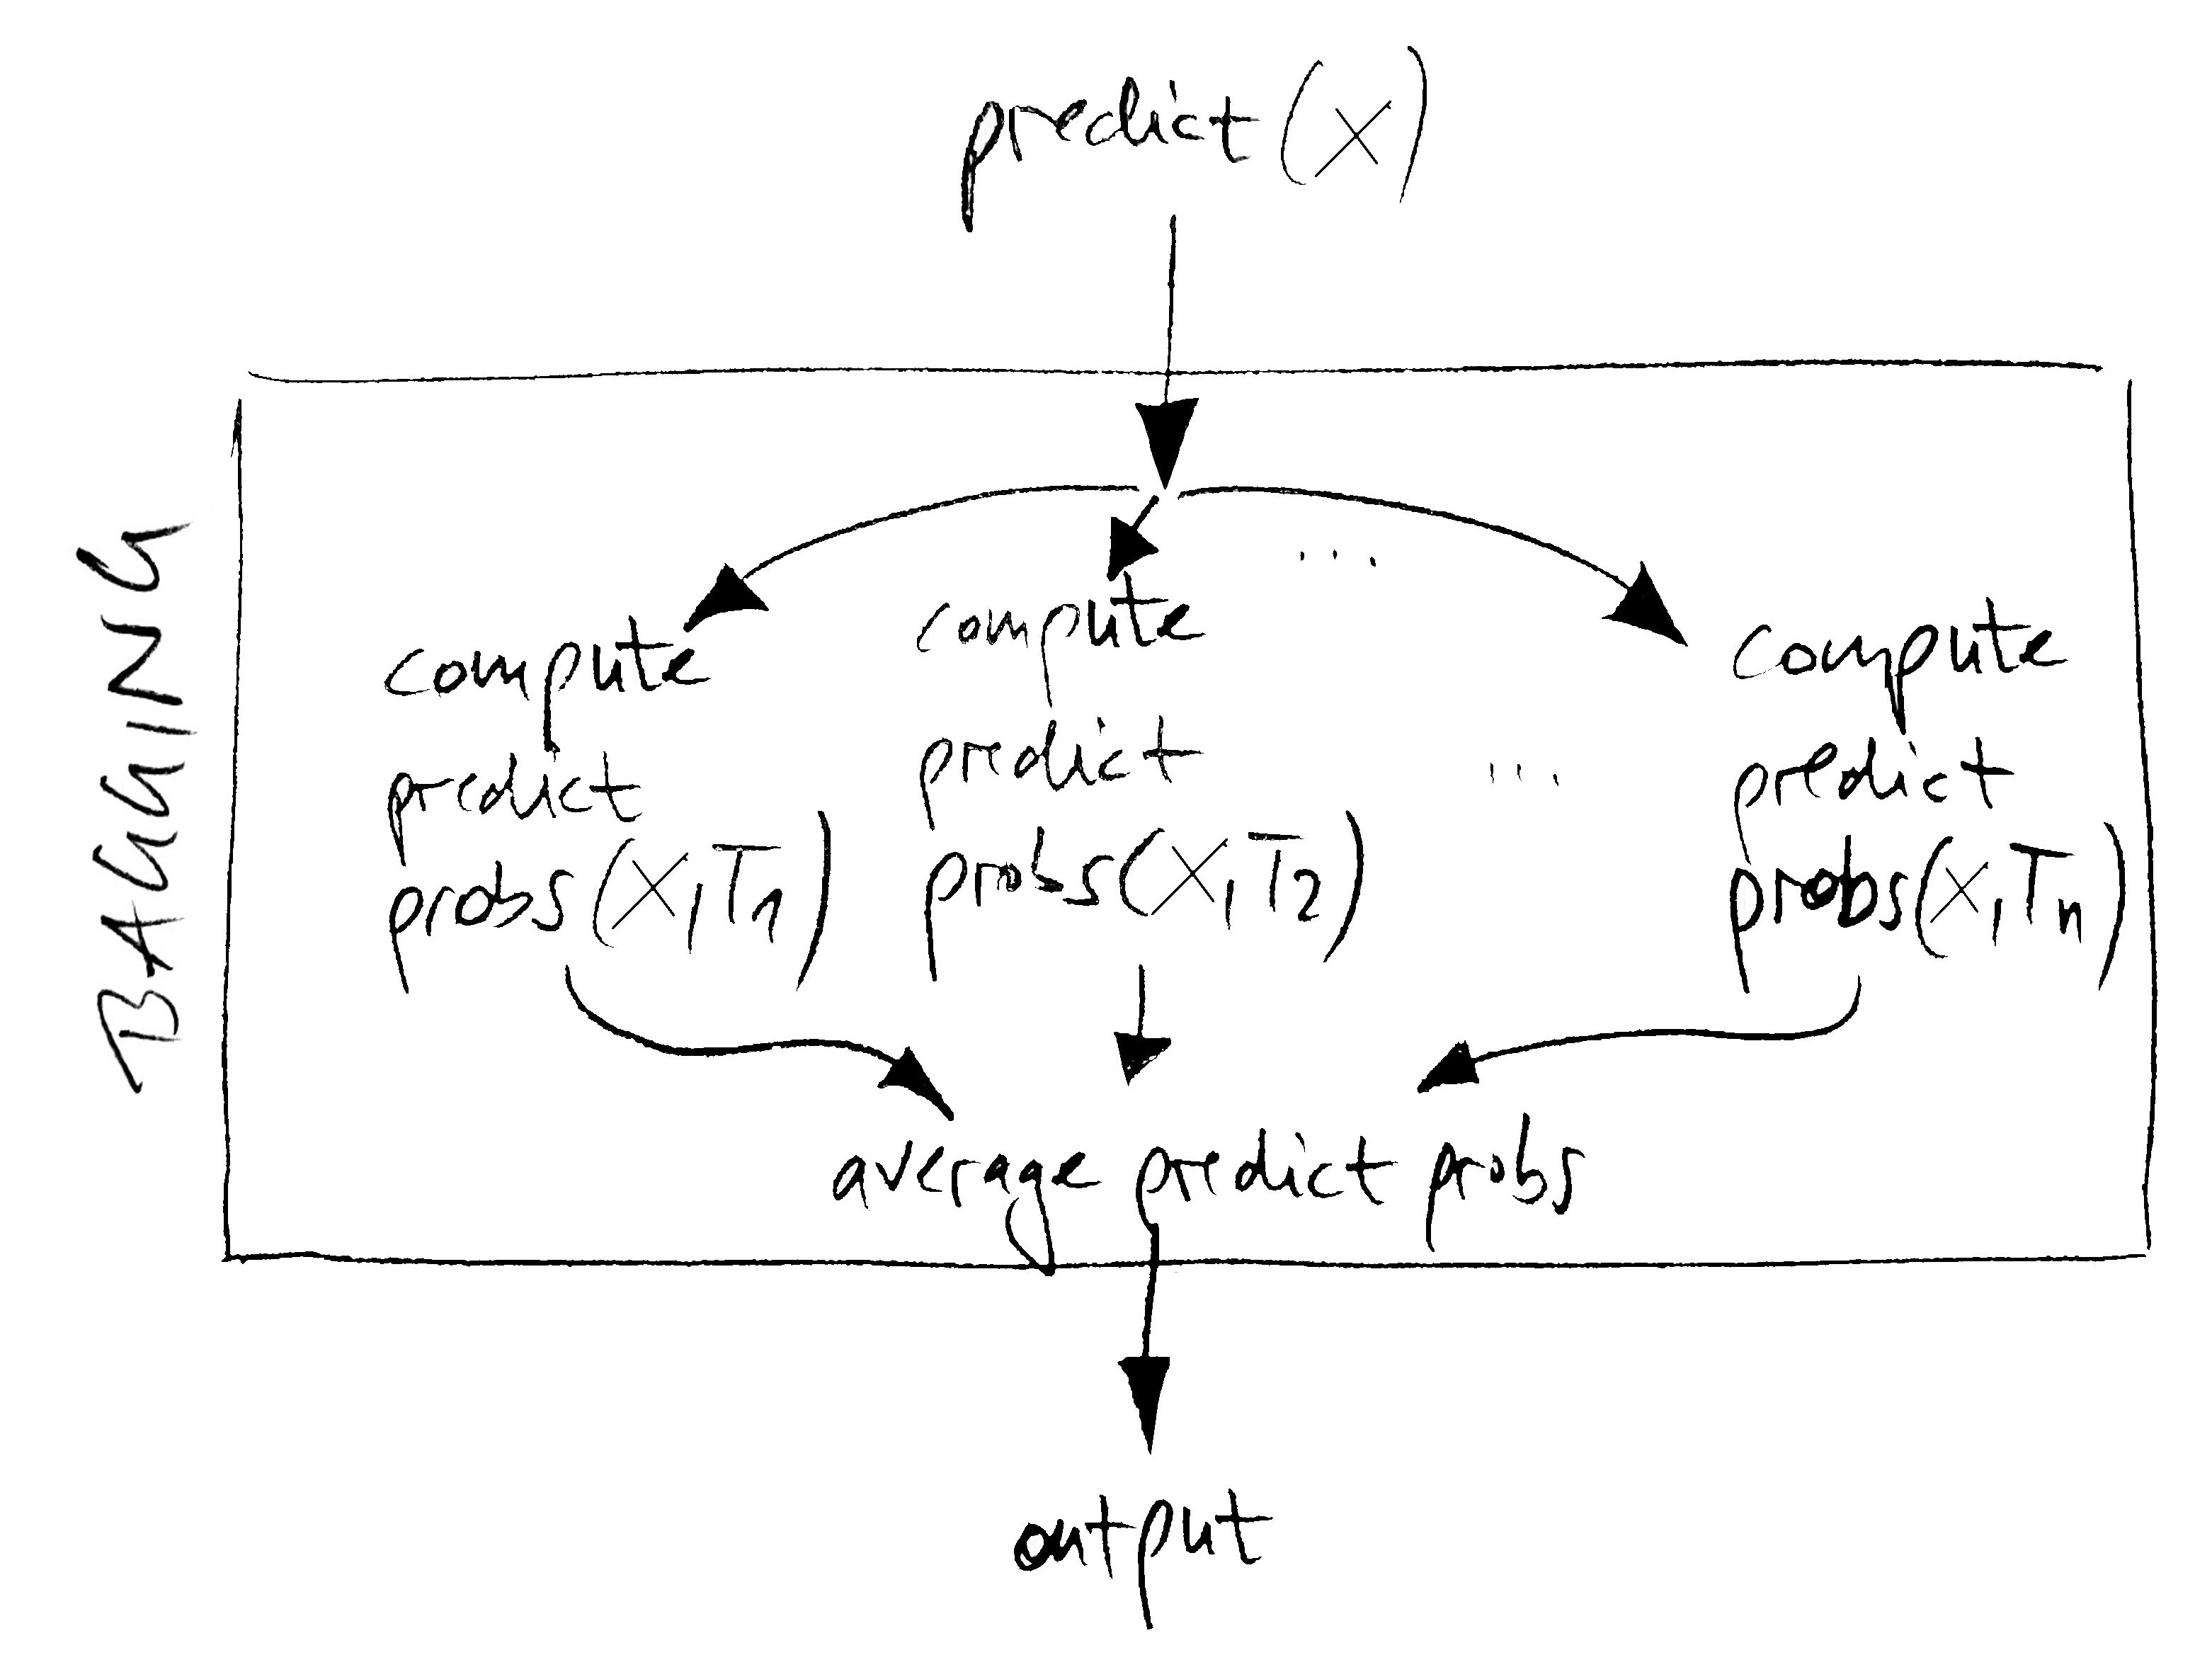 predict(X)
BAGGING
...
compute
predict
probs(X,T1)
compute
predict
probs(X,T2)
...
compute
predict
probs(X,Tn)
average predict probs
output